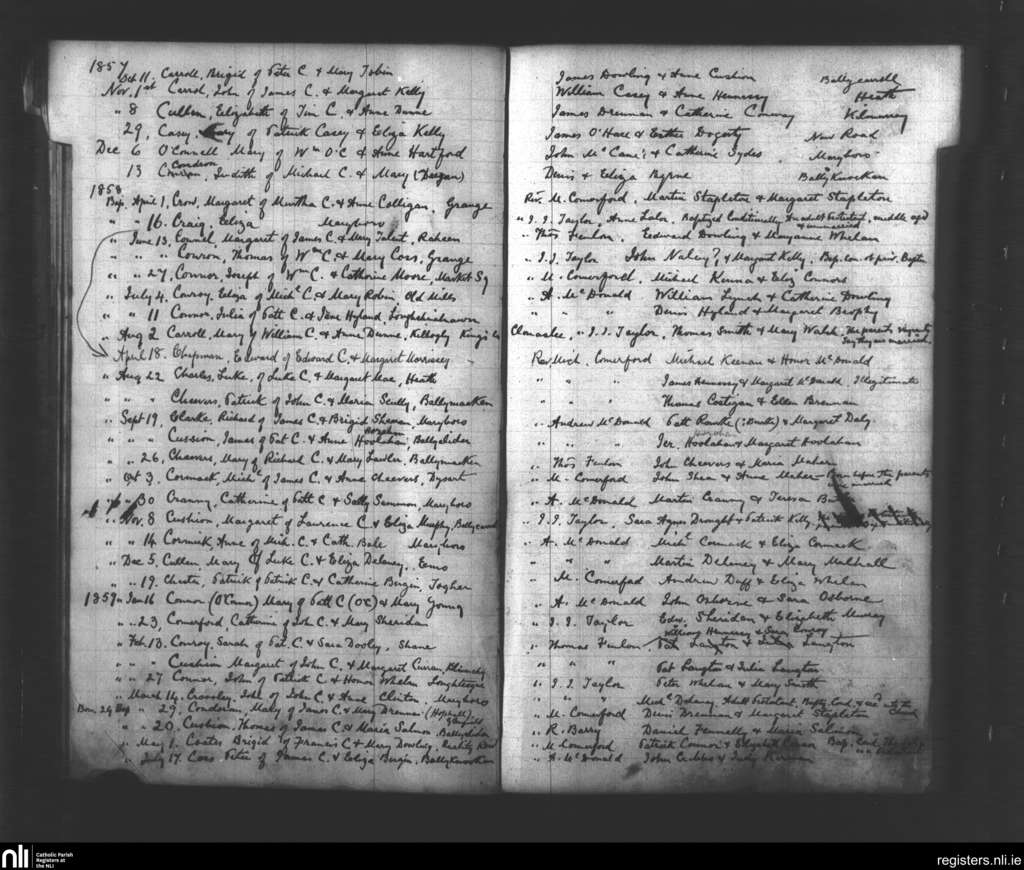 1857
Oct 11, Carroll, Brigid of Peter C. & Mary Tobin James Dowling & Anne Cushion Ballycarroll
Nov. 1st Carrol, John of James C. & Margaret Kelly William Casey & Anne Hennessy Heath
" 8 Cullen, Elizabeth of Tim C. & Anne Dunne James Drennan & Catherine Conway Kilminey
29, Casey, Mary of Patrick Casey & Eliza Kelly James O'Hare & Esther Fogerty New Road
Dec 6 O'Connell Mary of Wm O'C & Anne Hartford John McCane & Catherine Sydes Maryboro
13 Condron, Judith of Michael C. & Mary (Deegan) Denis & Eliza Byrne Ballyknocken
1858
Bap. April 1, Crow, Margaret of Murtha C. & Anne Colligan, Grange Rev. M. Comerford, Martin Stapleton & Margaret Stapleton
" 16. Craig, Eliza Maryboro " J. J. Taylor, Anne Lalor, Baptized Conditionally, An adult Protestant, middle aged & unmarried
" June 13, Connel, Margaret of James C. & Mary Talent, Raheen " Thos Fenlon, Edward Dowling & Maryanne Whelan
" " Conron, Thomas of Wm C. & Mary Coss, Grange " J. J. Taylor John Naley? & Margaret Kelly.
" " 27, Connor, Joseph of Wm C. & Catherine Moore, Market Sq " M. Comerford, Michael Kenna & Eliz Connors
" July 4, Conroy, Eliza of Michl C. & Mary Robin, Old Mills " A. McDonald William Lynch & Catherine Dowling
" " 11 Connor, Julia of Patt C. & Jane Hyland " " Denis Hyland & Margaret Brophy
" Aug 2 Carroll, Mary of William C. & Anne Dunne, King's Co Clonaslee, " J. J. Taylor, Thomas Smith & Mary Walsh. The parents say they are married.
April 18. Chapman, Edward of Edward C. & Margaret Morrissey Rev. Mich. Comerford Michael Keenan & Honor McDonald
" Aug 22 Charles, Luke, of Luke C. & Margaret Mae, Heath " " " James Hennessy & Margaret McDonald, Illegitimate
" " " Cheevers, Patrick of John C. & Maria Scully, Ballymacken " " " Thomas Costigan & Ellen Brennan
" Sept 19, Clarke, Richard of James C. & Brigid Sheeran, Maryboro " Andrew McDonald Patt Rourke & Margaret Daly
" " " Cussion, James of Pat C. & Anne Hoolahan, Ballyclider " " " Jer. Hoolahan & Margaret Hoolahan
" " 26, Cheevers, Mary of Richard C. & Mary Lawlor, Ballymacken " Thos Fenlon John Cheevers & Maria Maher
" Oct 3, Cormack, Michl of James C. & Anne Cheevers, Dysart " M. Comerford John Shea & Anne Maher
" " 30 Cranny, Catherine of Patt C. & Sally Sammon, Maryboro " A. McDonald Martin Cranny & Teresa
" Nov. 8 Cushion, Margaret of Laurence C. & Eliza Murphy, Ballycarroll " J. J. Taylor, Sara Agnes Drought & Patrick Kelly
" " 14 Cormick, Anne of Mich. C. & Cath. Bale Maryboro " A. McDonald Michl Cormack & Eliza Cormack
" Dec 5, Cullen Mary of Luke C. & Eliza Delaney, Emo " " " Martin Delaney & Mary Mulhall
" " 19, Chester, Patrick of Patrick C. & Catherine Bergin, Togher " M. Comerford Andrew Duff & Eliza Whelan
1859 " Jan 16 Connor (O'Connor) Mary of Patt C (O'C) & Mary Young " A. McDonald John Osborne & Sara Osborne
" " 23, Comerford, Catherine of Joh C. & Mary Sheridan " J. J. Taylor Edw. Sheridan & Elizabeth Murray
" Feb 13, Conroy, Sarah of Pat. C. & Sara Dooley, Shane " Thomas Fenlon William Hennessy & Sara Conroy
" " " Cushion Margaret of John C. & Margaret Curran, " " " Pat Langton & Julia Langton
" " 27 Connor, John of Patrick C. & Honor Whelan, " J. J. Taylor Peter Whelan & Mary Smith
" March 14, Crossley, John of John C. & Anne Clinton, Maryboro " " Michl Delaney, Adult Protestant,
Born 24 Bap " 29, Condron, Mary of James C. & Mary Drennan " M. Comerford Denis Drennan & Margaret Stapleton
" " 20, Cushion, Thomas of James C. & Maria Salmon, Ballyclider " R. Barry Daniel Fennelly & Maria Salmon
" May 1, Coates Brigid of Francis C. & Mary Dowling, " M. Comerford Patrick Connor & Elizabeth
" July 17, Coss Peter of James C. & Eliza Bergin, Ballyknocken " A. McDonald John Cubbs & Judy Kirwan
nli Catholic Parish
Registers at
the NLI
registers.nli.ie